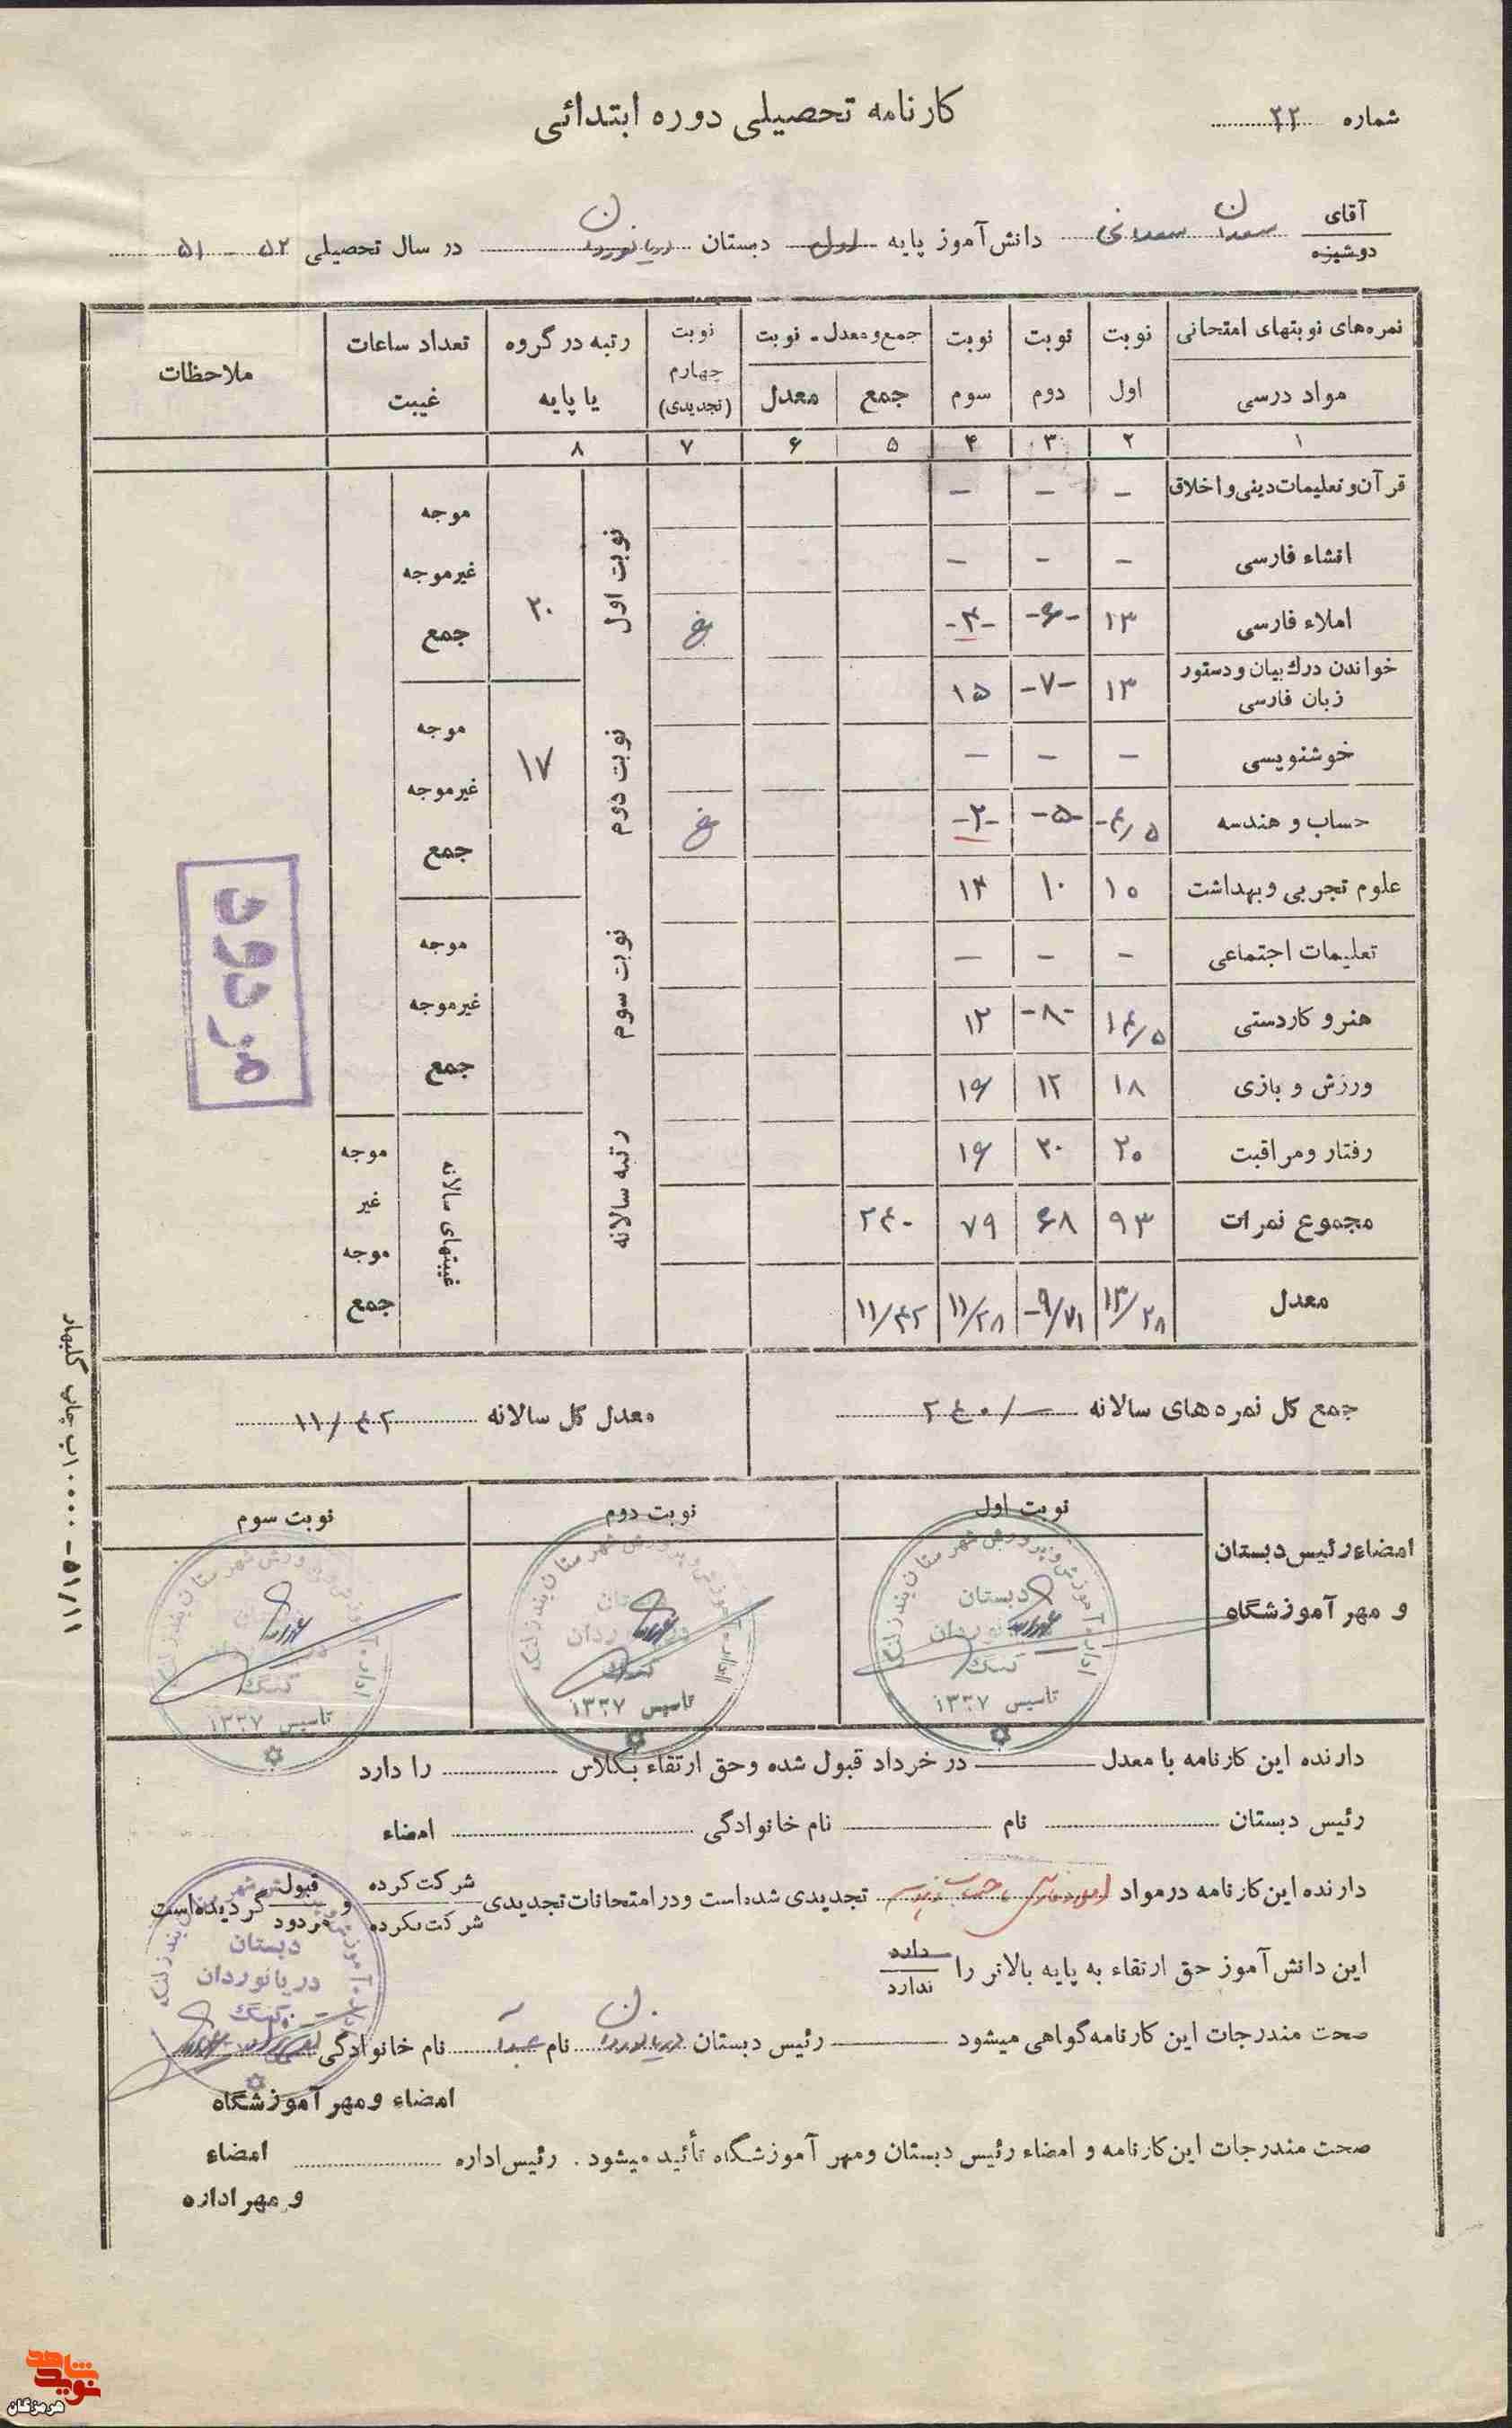 کارنامه تحصیلی دوره ابتدائی
شماره ۲۲
آقای
دوشیزه
سعدان سعدانی دانش‌آموز پایه اول دبستان دریانوردان در سال تحصیلی ۵۲ - ۵۱
نمره‌های نوبتهای امتحانی نوبت نوبت نوبت جمع و معدل - نوبت نوبت رتبه در گروه تعداد ساعات ملاحظات
مواد درسی اول دوم سوم جمع معدل چهارم (تجدیدی) یا پایه غیبت
۱ ۲ ۳ ۴ ۵ ۶ ۷ ۸
قرآن و تعلیمات دینی و اخلاق - - -
انشاء فارسی - - -
املاء فارسی ۱۳ -۶- -۴- غ
خواندن درك بیان و دستور
زبان فارسی ۱۳ -۷- ۱۵
خوشنویسی - - -
حساب و هندسه -۴/۵ -۵- -۲- غ
علوم تجربی و بهداشت ۱۰ ۱۰ ۱۴
تعلیمات اجتماعی - - -
هنر و کاردستی ۱۴/۵ -۸- ۱۲
ورزش و بازی ۱۸ ۱۲ ۱۶
رفتار و مراقبت ۲۰ ۲۰ ۱۶
مجموع نمرات ۹۳ ۶۸ ۷۹ ۲۴۰
معدل ۱۳/۲۸ -۹/۷۱ ۱۱/۲۸ ۱۱/۴۲
نوبت اول ۲۰ موجه
غیرموجه
جمع
نوبت دوم ۱۷ موجه
غیرموجه
جمع
نوبت سوم موجه
غیرموجه
جمع
رتبه سالانه غیبتهای سالانه موجه
غیر
موجه
جمع
مردود
جمع کل نمره‌های سالانه ۲۴۰/- معدل کل سالانه ۱۱/۴۲
امضاء رئیس دبستان
و مهر آموزشگاه
نوبت اول نوبت دوم نوبت سوم
اداره آموزش و پرورش شهرستان بندرلنگه
دبستان
دریانوردان
کنگ
تاسیس ۱۳۳۷
تاسیس ۱۳۳۷
کنگ
تاسیس ۱۳۳۷
دارنده این کارنامه با معدل در خرداد قبول شده و حق ارتقاء بکلاس را دارد
رئیس دبستان نام نام خانوادگی امضاء
دارنده این کارنامه در مواد املاء فارسی، حساب و هندسه تجدیدی شده‌است و در امتحانات تجدیدی شرکت کرده
شرکت نکرده و قبول
مردود گردیده‌است
این دانش‌آموز حق ارتقاء به پایه بالاتر را دارد
ندارد
صحت مندرجات این کارنامه گواهی میشود رئیس دبستان دریانوردان نام نام خانوادگی
دبستان
دریانوردان
کنگ
امضاء و مهر آموزشگاه
صحت مندرجات این کارنامه و امضاء رئیس دبستان و مهر آموزشگاه تأئید میشود . رئیس اداره امضاء
و مهر اداره
۱۰۰۰۰ب چاپ گلبهار - ۵۱/۱۱
نوید شاهد
هرمزگان